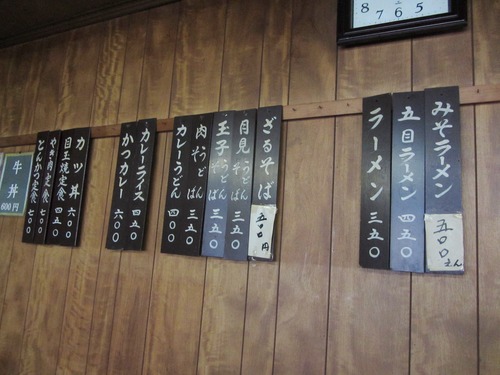 8 7 6 5
みそラーメン 五〇〇えん
五目ラーメン 四五〇
ラーメン 三五〇
ざるそば 五〇〇円
月見うどんそば 三五〇
玉子うどんそば 三五〇
肉うどんそば 三五〇
カレーうどん 四〇〇
カレーライス 四五〇
かつカレー 六〇〇
カツ丼 六五〇
目玉焼定食 六〇〇
やき肉定食 七〇〇
とんかつ定食 七〇〇
牛丼 600円